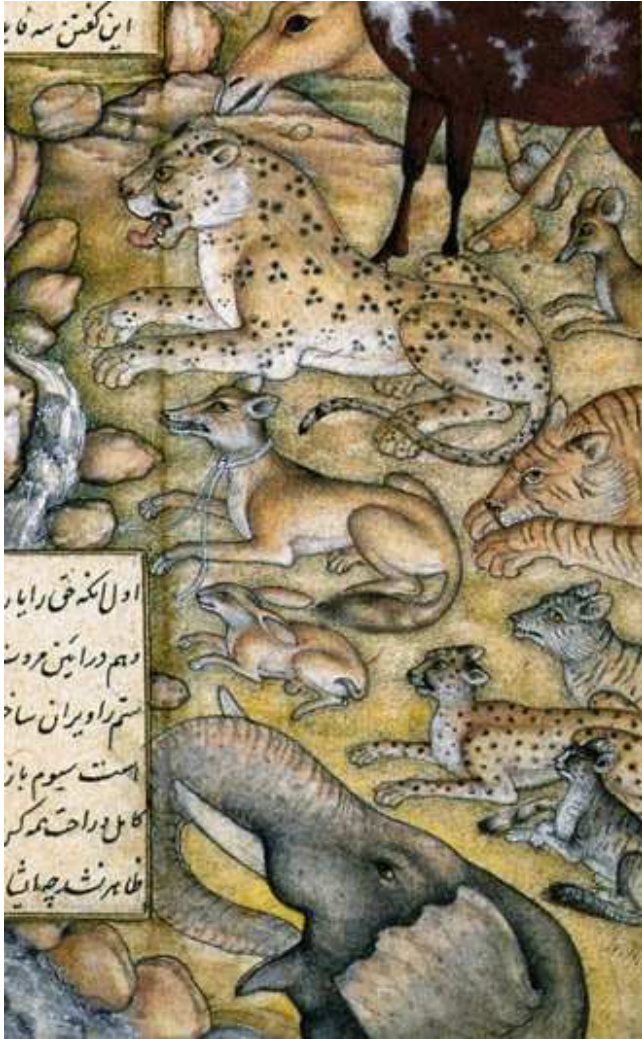 این گفتن سه فاید
اول آنکه حق را یار
و هم در آئین مروت
ستم را ویران ساخ
است سیوم باز
کامل در راحت همه کر
ظاهر نشد چه ایشا